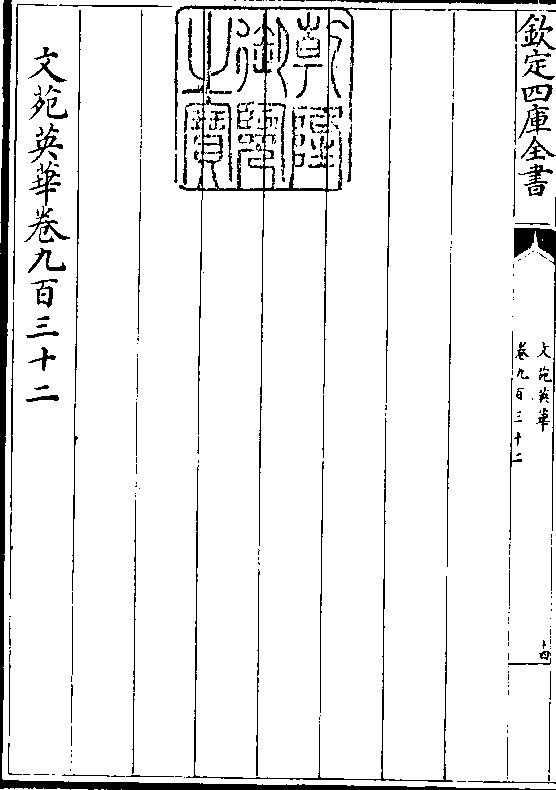 欽定四庫全書
文苑英華
卷九百三十二
十四
乾隆
御覽
之寶
文苑英華卷九百三十二